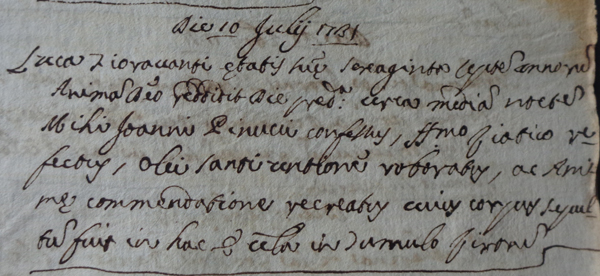 Die 10 Julij 1731
Luca Fioravanti ętatis suę sexaginta septē annorū
Animā Deo reddidit Die pred.ᵃ circa mediā noctē
Mihi Joanni Pinucij confessus, SSmo Viatico re-
fectus, Olei santi untione roboratus, ac Ani-
mę commendatione recreatus cuius corpus sepul-
tū fuit in hac in Tumulo